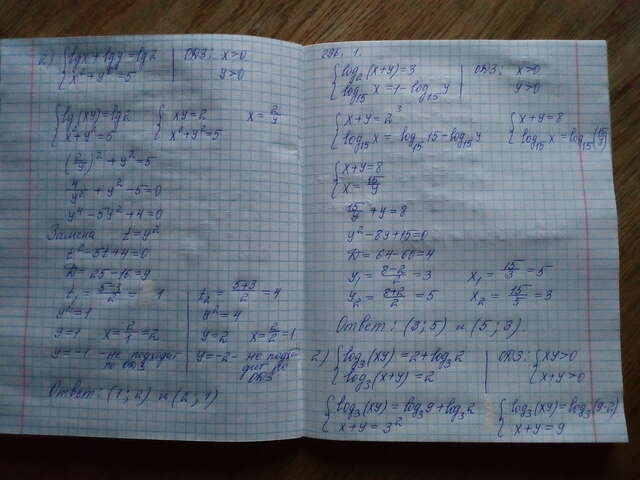 2) { lgx + lgy = lg2 | ОДЗ: x>0
{ x² + y² = 5 | y>0
{ lg(xy) = lg2 { xy = 2 x = 2/y
{ x² + y² = 5 { x² + y² = 5
(2/y)² + y² = 5
4/y² + y² - 5 = 0
y⁴ - 5y² + 4 = 0
Замена t = y²
t² - 5t + 4 = 0
D = 25 - 16 = 9
t₁ = (5-3)/2 = 1 t₂ = (5+3)/2 = 4
y² = 1 y² = 4
y = 1 x = 2/1 = 2 y = 2 x = 2/2 = 1
y = -1 - не подходит по ОДЗ y = -2 - не подходит по ОДЗ
Ответ: (1; 2) и (2; 1)
296. 1.
{ log₂(x+y) = 3 | ОДЗ: x>0
{ log₁₅ x = 1 - log₁₅ y | y>0
{ x+y = 2³ { x+y = 8
{ log₁₅ x = log₁₅ 15 - log₁₅ y { log₁₅ x = log₁₅ (15/y)
{ x+y = 8
{ x = 15/y
15/y + y = 8
y² - 8y + 15 = 0
D = 64 - 60 = 4
y₁ = (8-2)/2 = 3 x₁ = 15/3 = 5
y₂ = (8+2)/2 = 5 x₂ = 15/5 = 3
Ответ: (3; 5) и (5; 3).
2) { log₃(xy) = 2 + log₃2 | ОДЗ: { xy>0
{ log₃(x+y) = 2 | { x+y>0
{ log₃(xy) = log₃9 + log₃2 { log₃(xy) = log₃(9·2)
{ x+y = 3² { x+y = 9